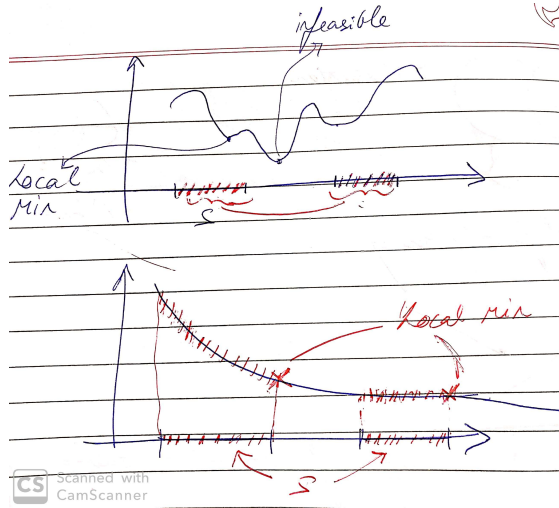 infeasible
Local
Min
S
Local min
S
CS Scanned with
CamScanner